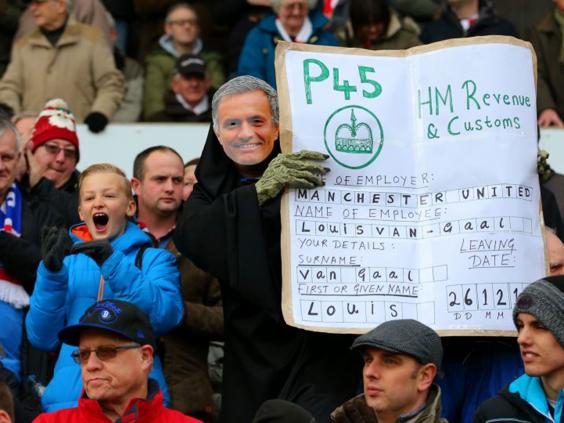 P45
HM Revenue
& Customs
OF EMPLOYER:
MANCHESTER UNITED
NAME OF EMPLOYEE:
LOUIS VAN-GAAL
YOUR DETAILS:
LEAVING
DATE:
SURNAME:
Van Gaal
FIRST OR GIVEN NAME:
LOUIS
26 12 1
DD MM